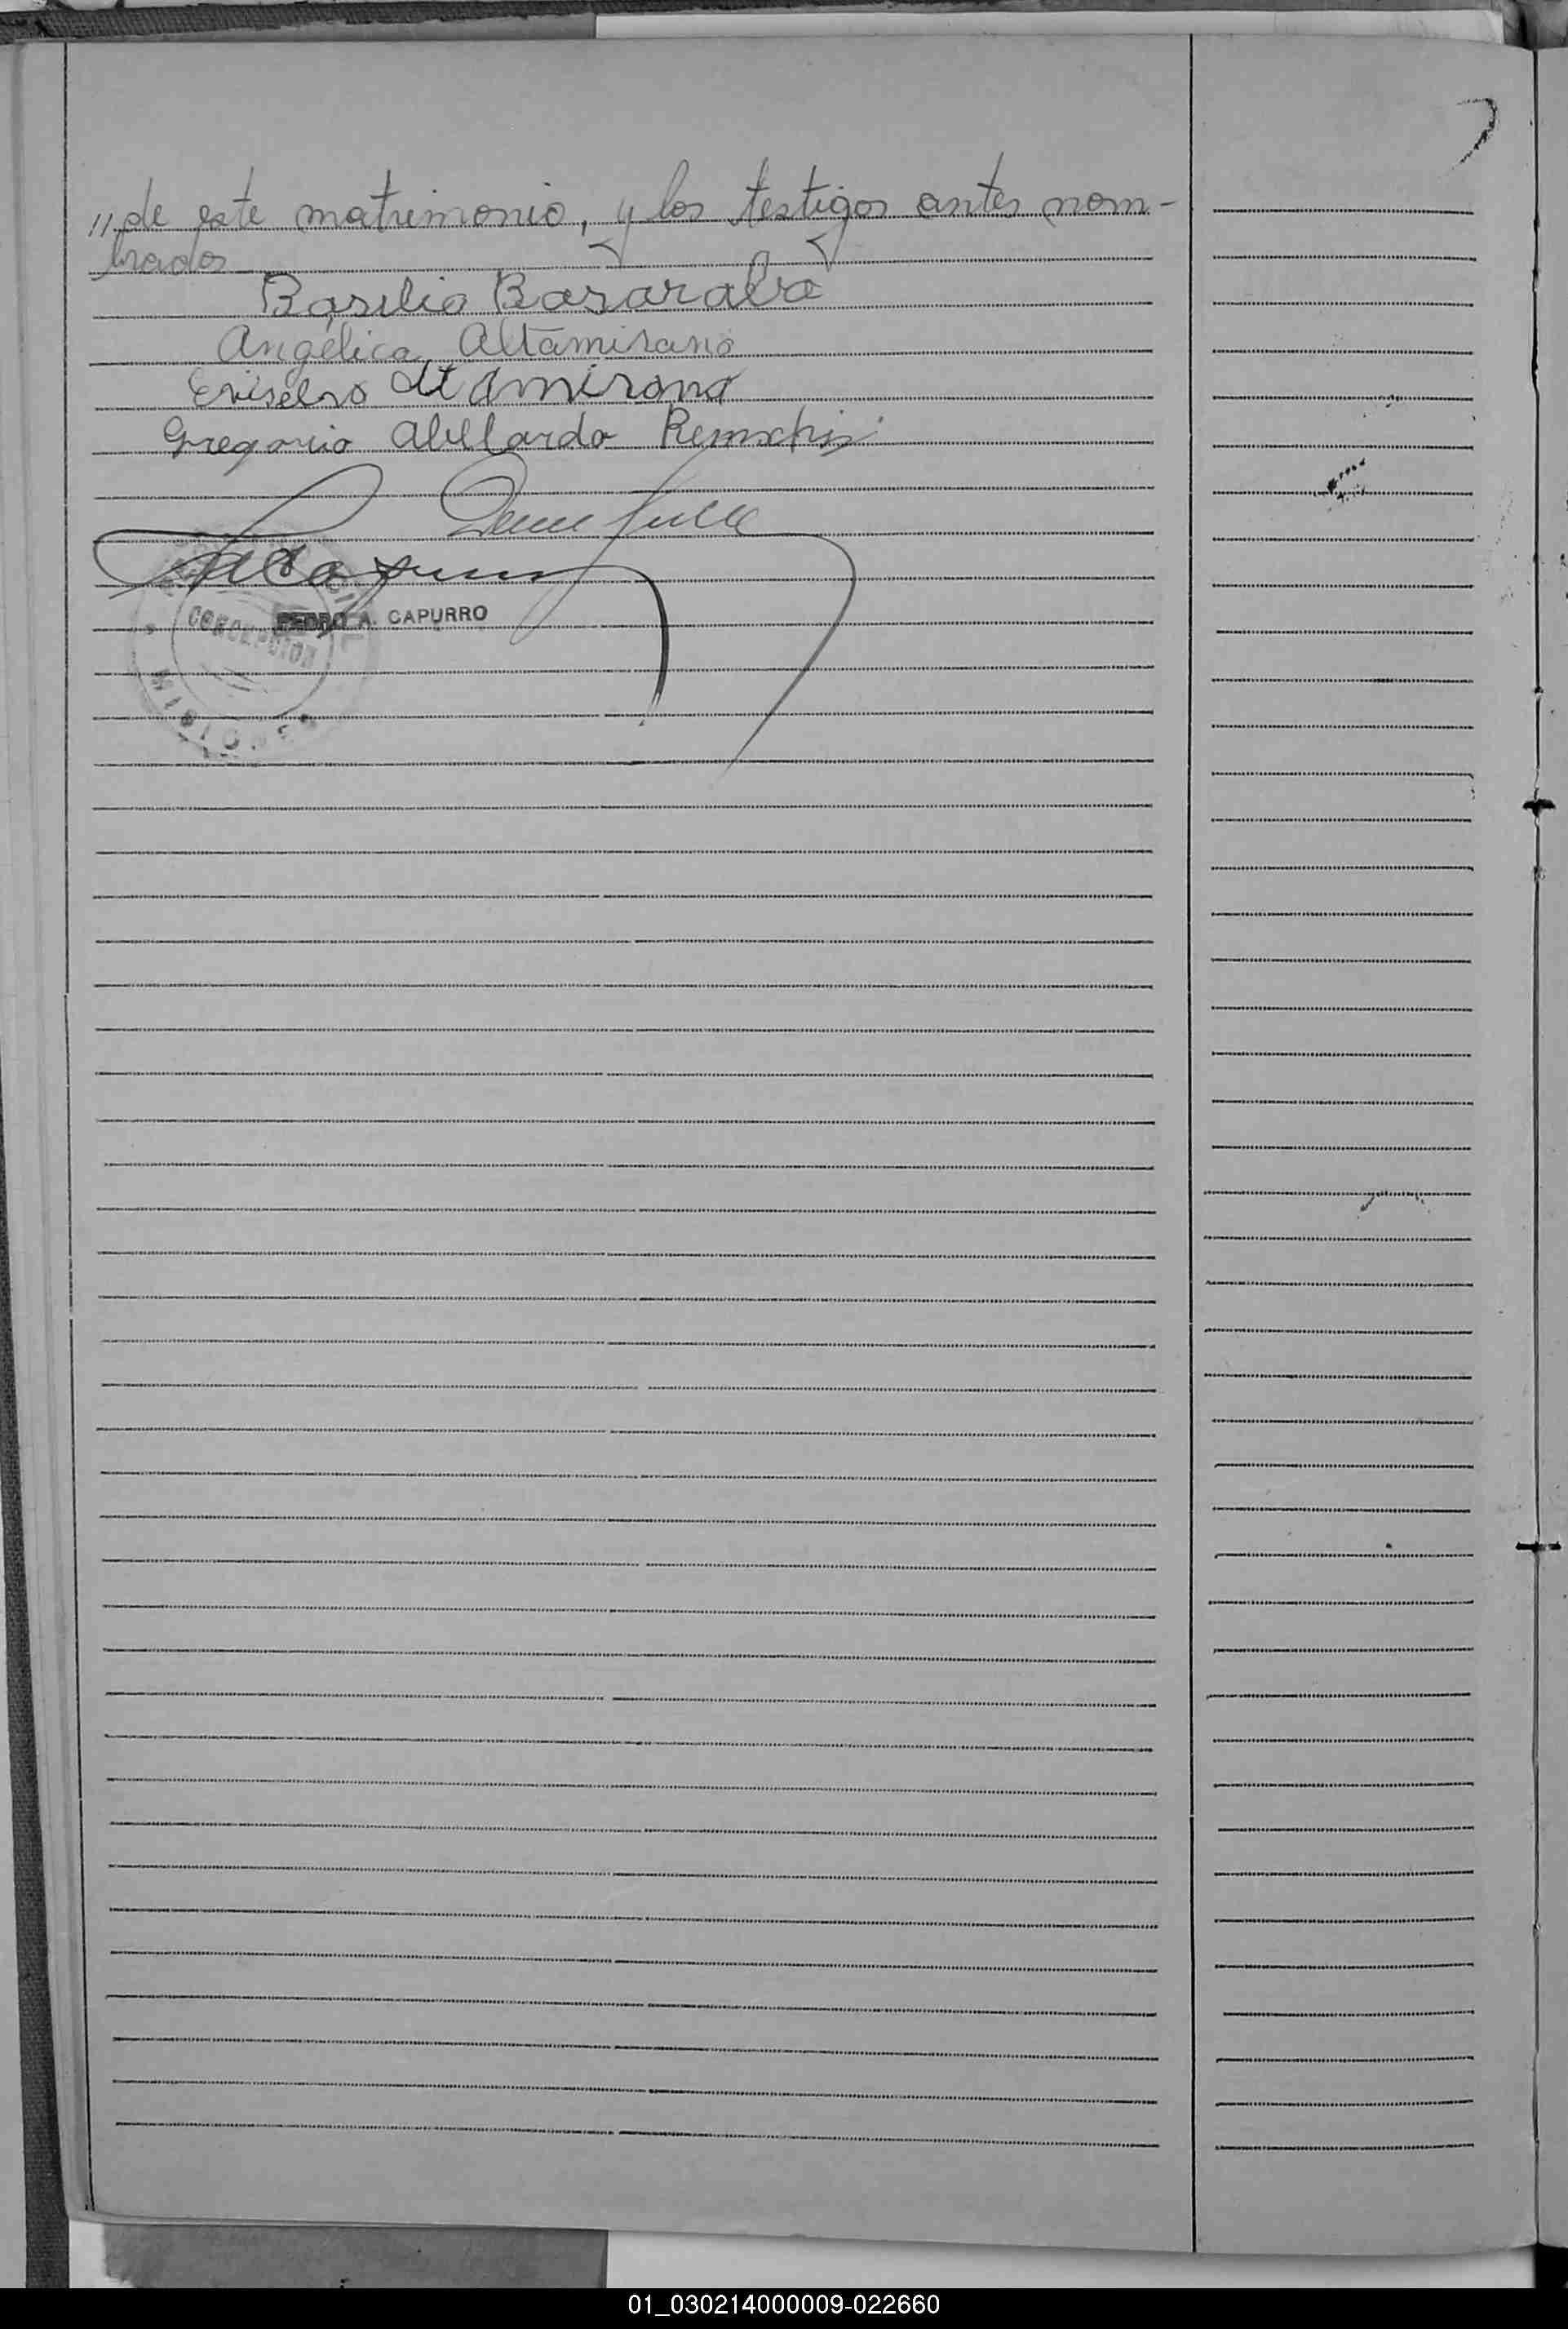 "de este matrimonio, y los testigos antes nom-
brados
Basilio Basaraba
Angélica Altamirano
Altamirano
Gregorio Abelardo
PEDRO A. CAPURRO
CONCEPCION
MISIONES
01_030214000009-022660